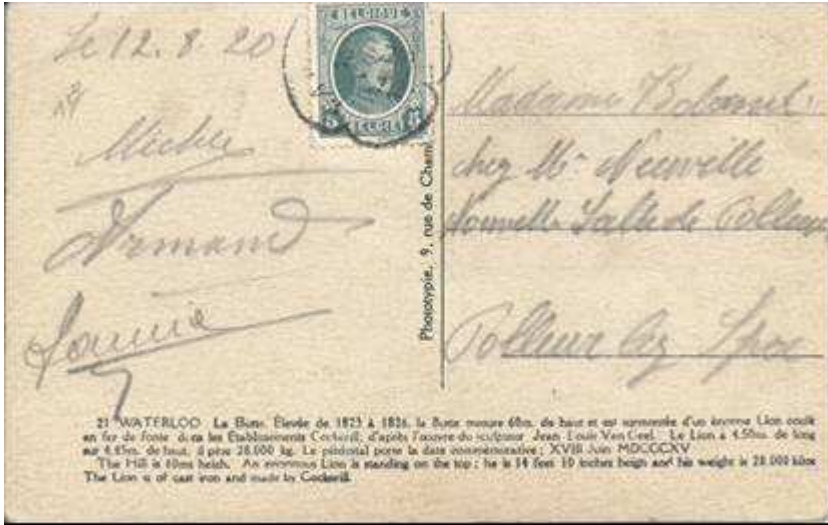 Le 12.8.20
BELGIQUE
5 5
BELGIË
Armand
Phototypie, 9, rue de
Madame
chez Mr Neuville
Nouvelle Salle de Polleur
Polleur lez Spa
21 WATERLOO La Butte. Élevée de 1823 à 1826, la Butte mesure 60m. de haut et est surmontée d'un énorme Lion coulé
en fer de fonte dans les Établissements Cockerill, d'après l'œuvre du sculpteur Jean Louis Van Geel. Le Lion a 4.50m. de long
sur 4.45m. de haut, il pèse 28.000 kg. Le piédestal porte la date commémorative ; XVIII Juin MDCCCXV
The Hill is 60ms heigh. An enormous Lion is standing on the top ; he is 14 feet 10 inches heigh and his weight is 28.000 kilos
The Lion is of cast iron and made by Cockerill.